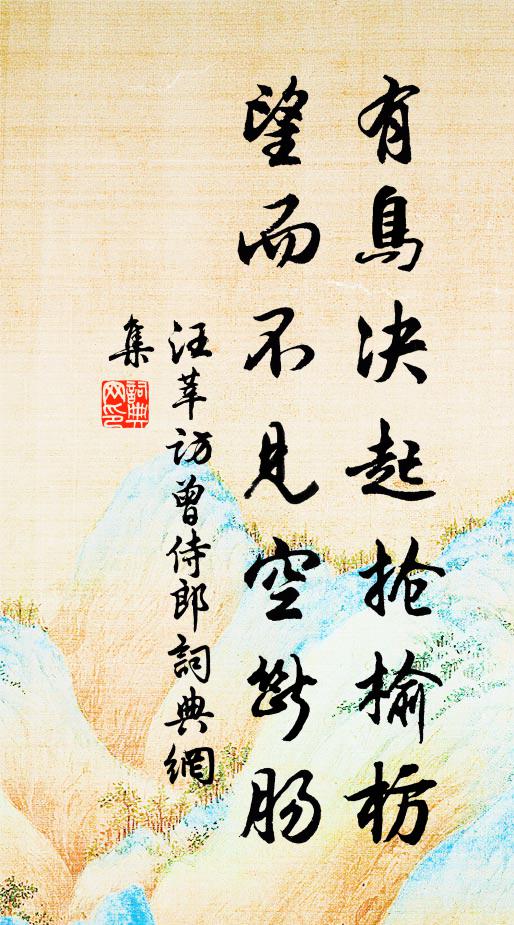 有鳥決起搶榆枋
望而不見空斷腸
汪莘訪曾侍郎詞典網
集
詞典
網印